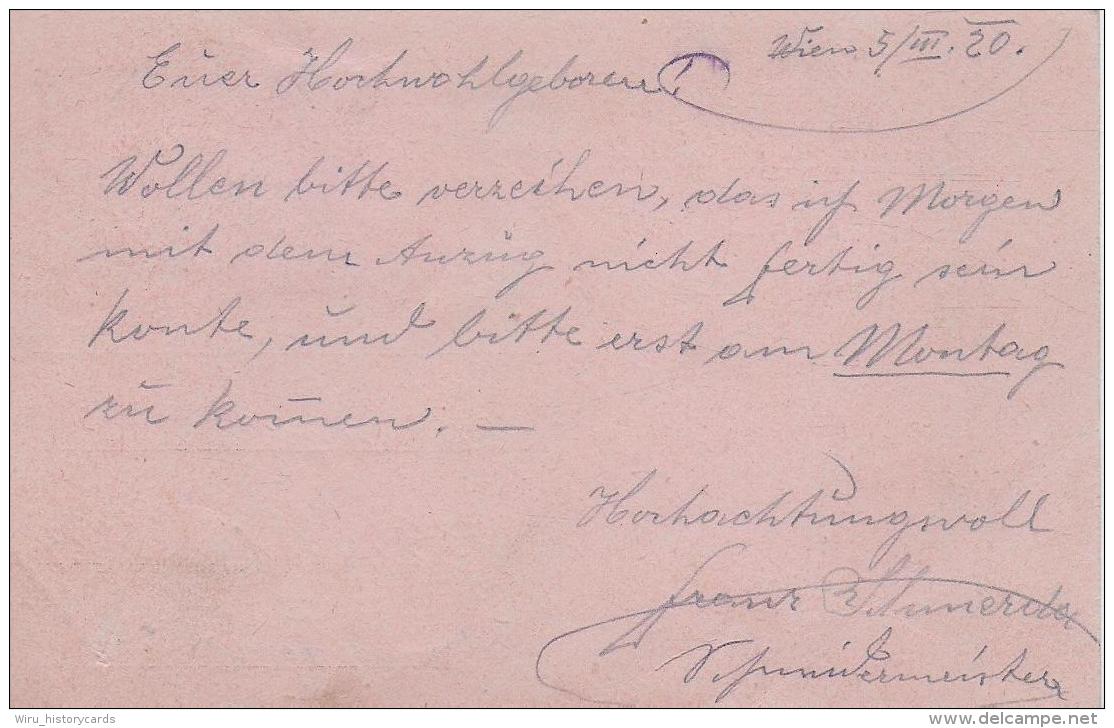 Wien 5/III. 20.
Euer Hochwohlgeboren!
Wollen bitte verzeihen, das ich Morgen
mit dem Anzug nicht fertig sein
konte, und bitte erst am Montag
zu kom̄en. —
Hochachtungsvoll
Franz Schmerda
Schneidermeister
Wiru_historycards
www.delcampe.net